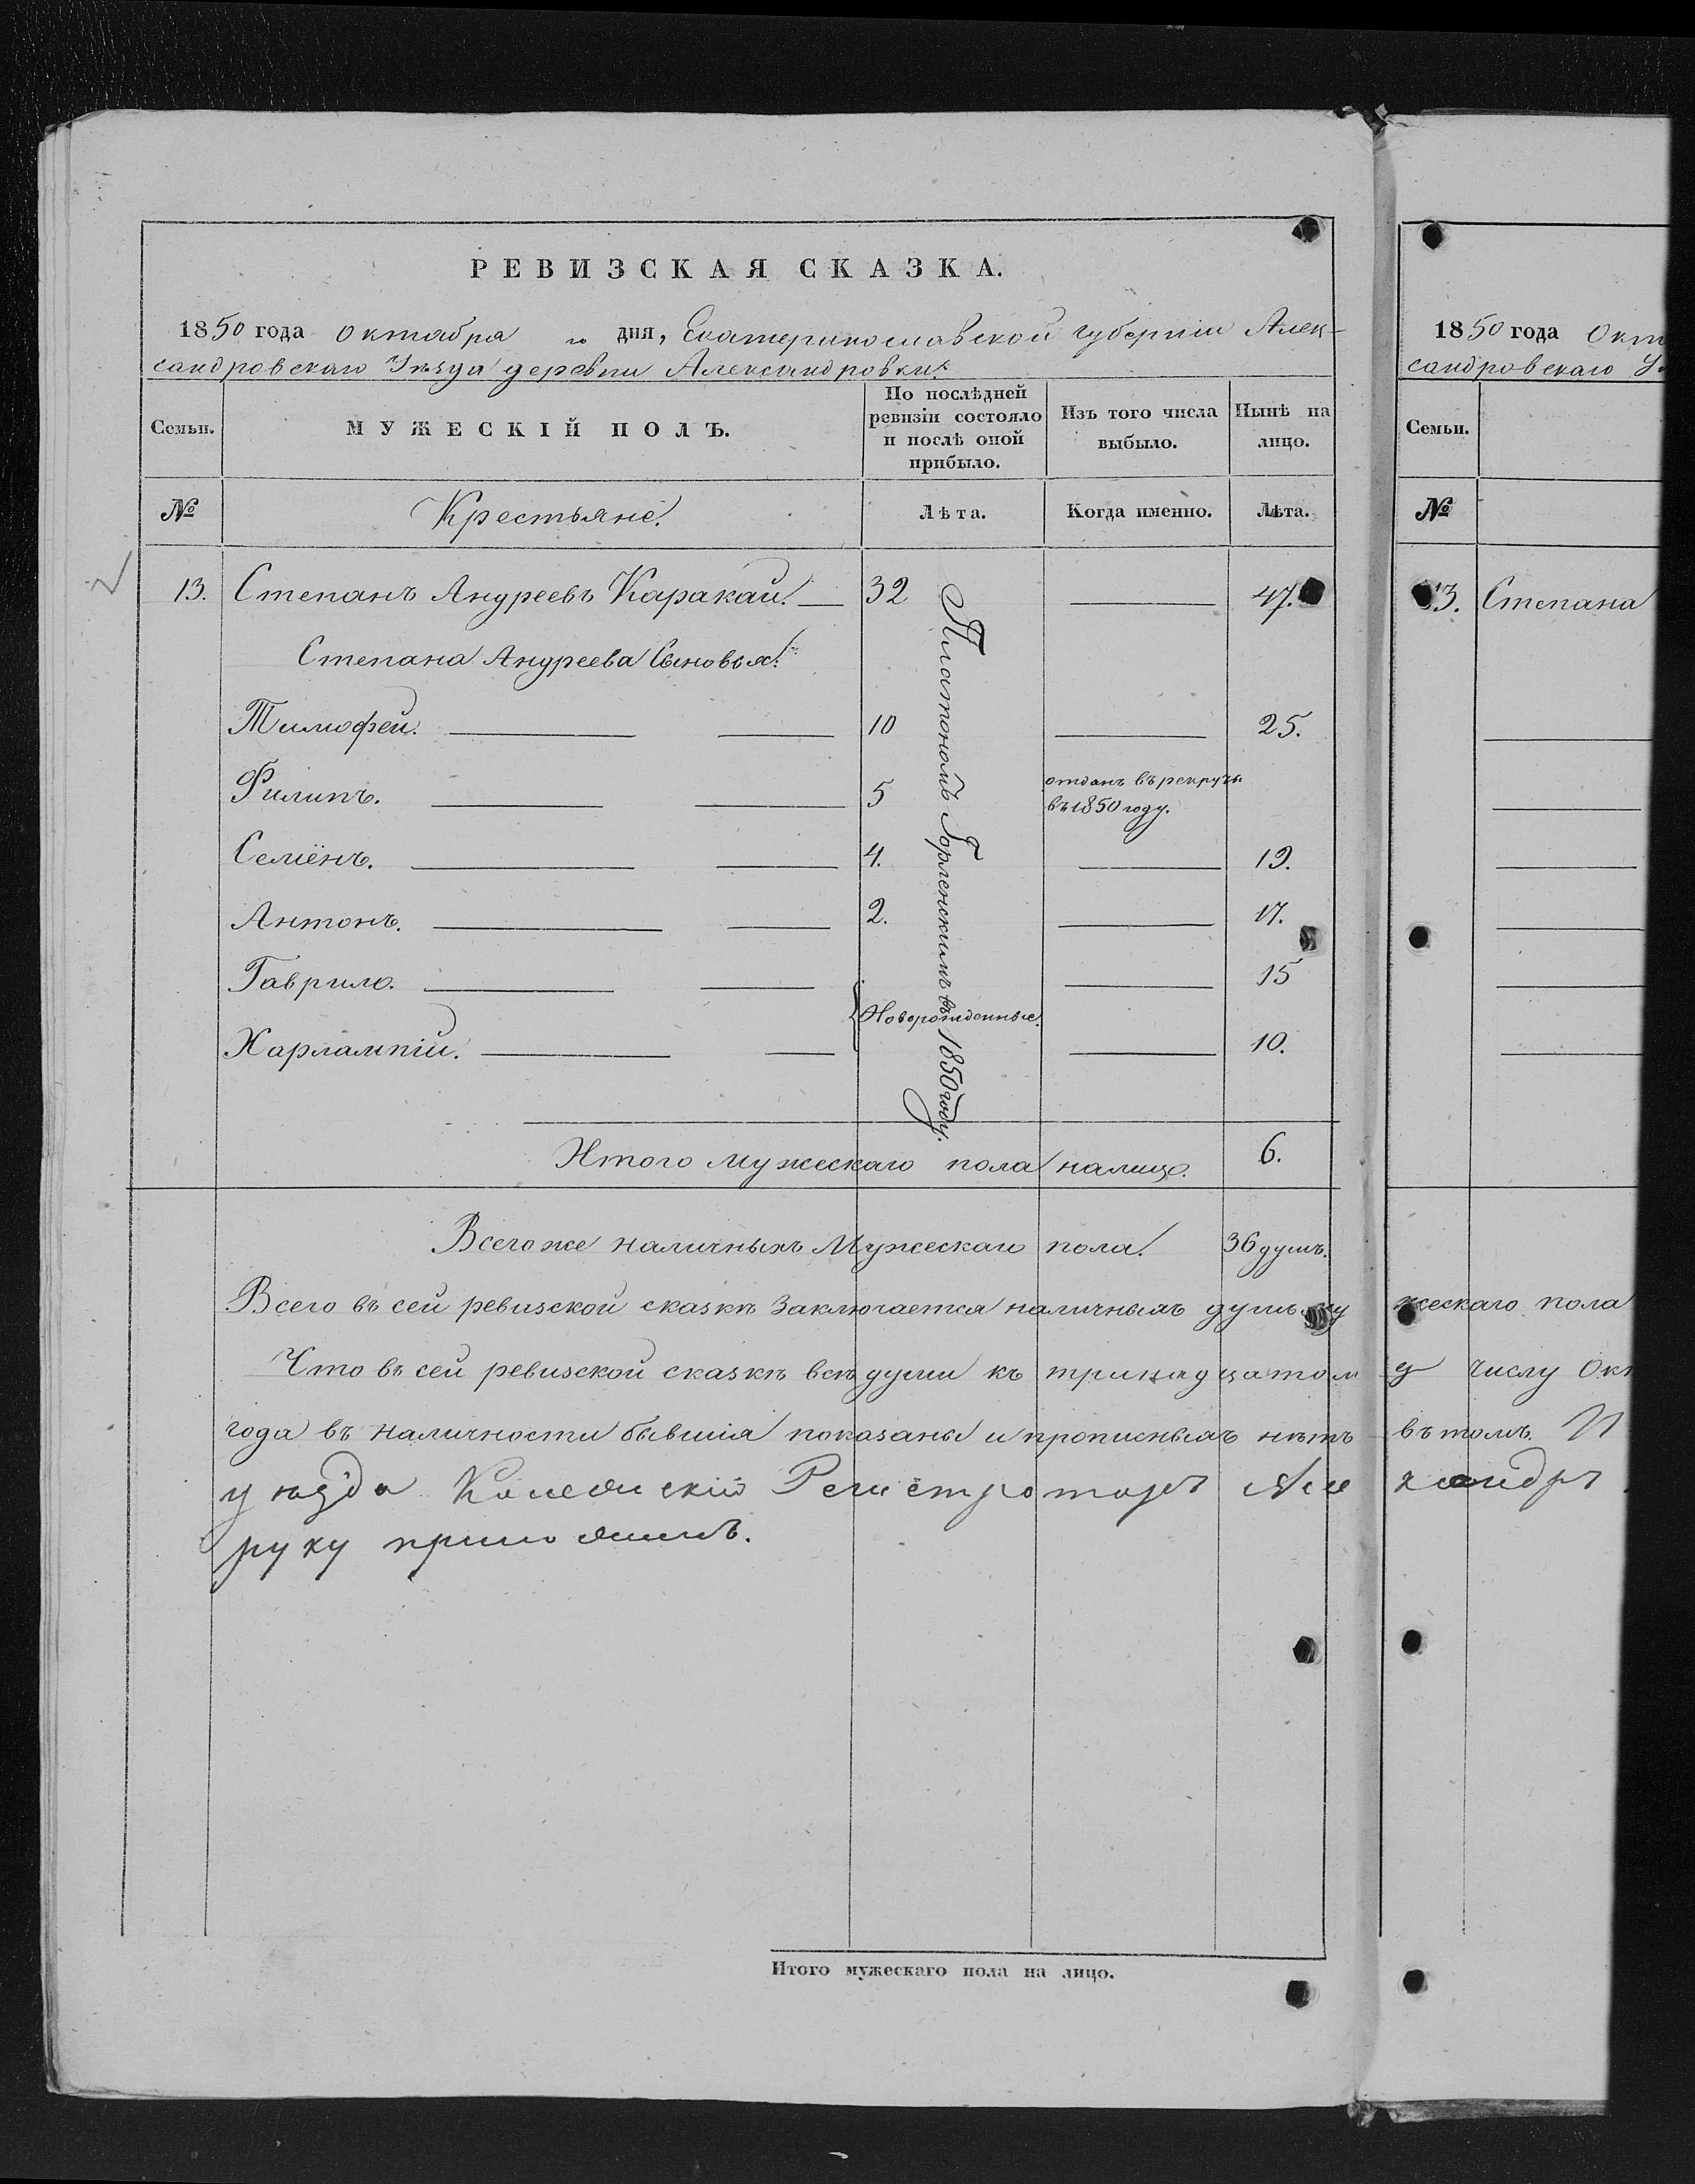 РЕВИЗСКАЯ СКАЗКА.
1850 года Октября го дня, Екатеринославской губерніи Алек-
сандровскаго Уѣзда деревни Александровки.
Семьи.
МУЖЕСКІЙ ПОЛЪ.
По послѣдней ревизіи состояло и послѣ оной прибыло.
Изъ того числа выбыло.
Нынѣ на лицо.
№
Крестьяне.
Лѣта.
Когда именно.
Лѣта.
13. Степанъ Андреевъ Каракай. 32 47.
Степана Андреева Сыновья:
Тимофей. 10 25.
Филипъ. 5 отданъ въ рекруты
въ 1850 году.
Семёнъ. 4. 19.
Антонъ. 2. 17.
Гаврило. 15
Новорожденные.
Харлампій. 10.
Платономъ Горленскимъ въ 1850 году.
Итого мужескаго пола налицо. 6.
Всего же наличныхъ Мужескаго пола. 36 душъ.
Всего въ сей ревизской сказкѣ Заключается наличныхъ душъ му
Что въ сей ревизской сказкѣ всѣ души къ тринадцатом
года въ наличности бывшія показаны и прописныхъ нѣтъ
уѣзда Колежскій Регистраторъ Але
руку приложилъ.
Итого мужескаго пола на лицо.
1850 года Окт
сандровскаго У
Семьи.
№
13. Степана
жескаго пола
у числу Окт
въ томъ. И
ксандръ